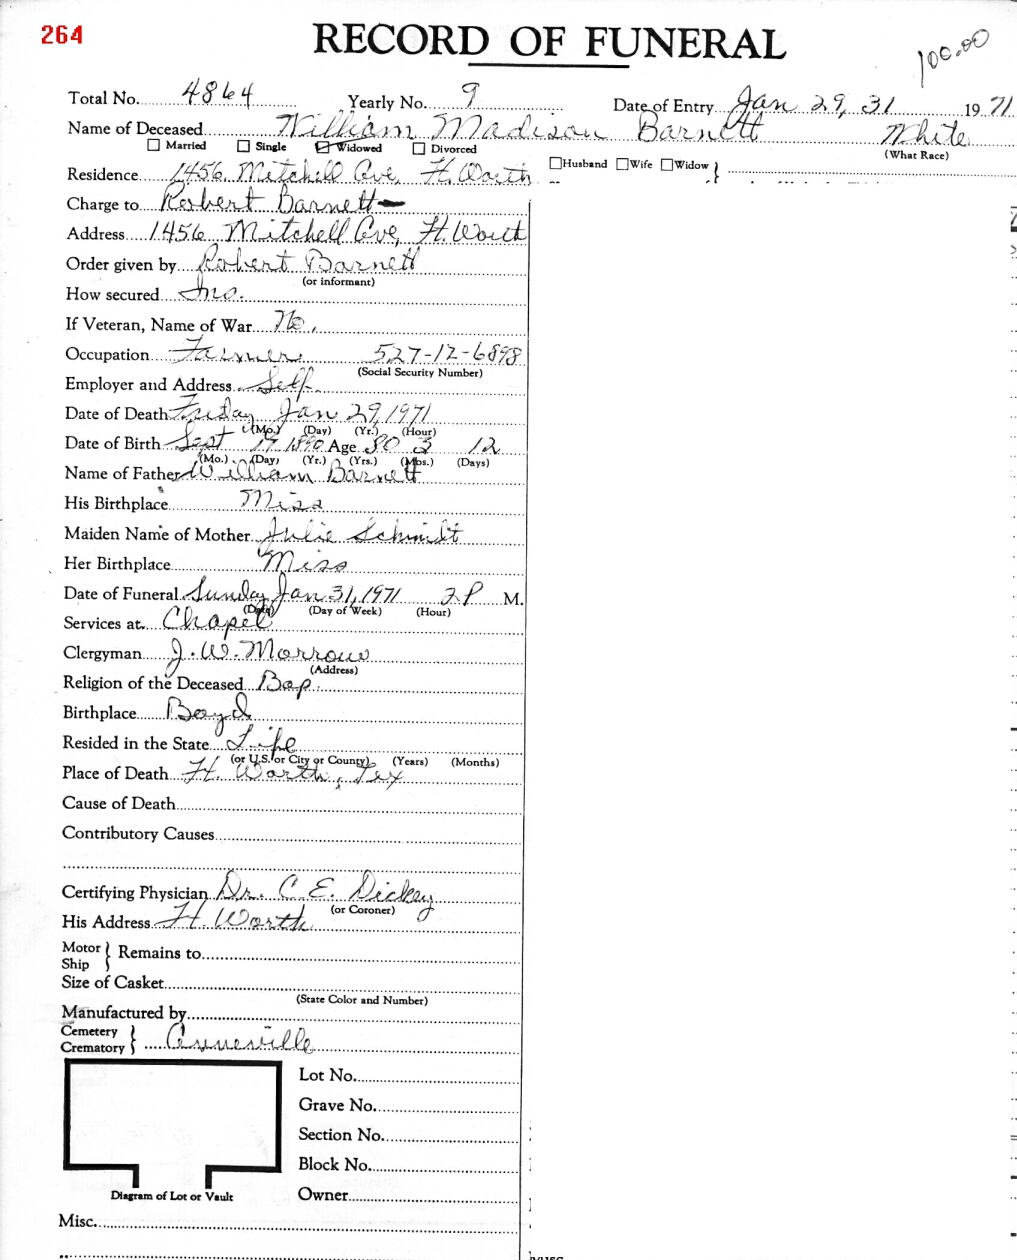 264
RECORD OF FUNERAL
100.00
Total No. 4864 Yearly No. 9 Date of Entry Jan 29, 31 1971
Name of Deceased William Madison Barnett White
Married Single Widowed Divorced (What Race)
Residence 1456 Mitchell Ave, Ft. Worth Husband Wife Widow }
Charge to Robert Barnett
Address 1456 Mitchell Ave, Ft. Worth
Order given by Robert Barnett
(or informant)
How secured Ins.
If Veteran, Name of War No.
Occupation Farmer 527-12-6898
(Social Security Number)
Employer and Address Self
Date of Death Friday Jan 29, 1971
(Mo.) (Day) (Yr.) (Hour)
Date of Birth Sept 17 1890 Age 80 3 12
(Mo.) (Day) (Yr.) (Yrs.) (Mos.) (Days)
Name of Father William Barnett
His Birthplace Miss
Maiden Name of Mother Julie Schmidt
Her Birthplace Miss
Date of Funeral Sunday Jan 31, 1971 2 P M.
(Date) (Day of Week) (Hour)
Services at Chapel
Clergyman J. W. Morrow
(Address)
Religion of the Deceased Bap.
Birthplace Boyd
Resided in the State Life
(or U.S. or City or County) (Years) (Months)
Place of Death Ft. Worth, Tex
Cause of Death
Contributory Causes
Certifying Physician Dr. C. E. Dickey
(or Coroner)
His Address Ft. Worth
Motor Ship } Remains to
Size of Casket
(State Color and Number)
Manufactured by
Cemetery Crematory } Anneville
Lot No.
Grave No.
Section No.
Block No.
Diagram of Lot or Vault
Owner
Misc.